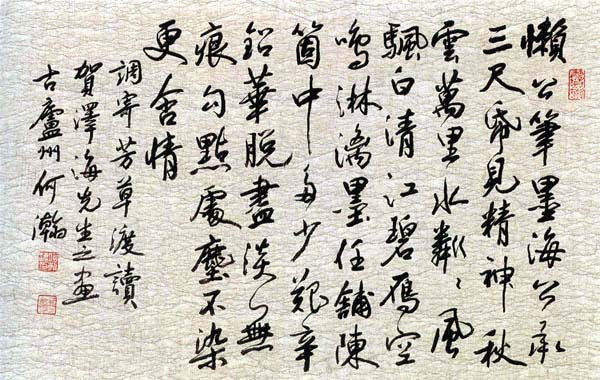 懶公筆墨海公承
三尺帋見精神秋
雲萬里水粼〻風
颿白清江碧雁空
鳴淋漓墨任舖陳
箇中多少艱辛
鉛華脫盡淡〻無
痕勾點處塵不染
更含情
調寄芳草渡讀
賀澤海先生之畫
古廬州何瀚